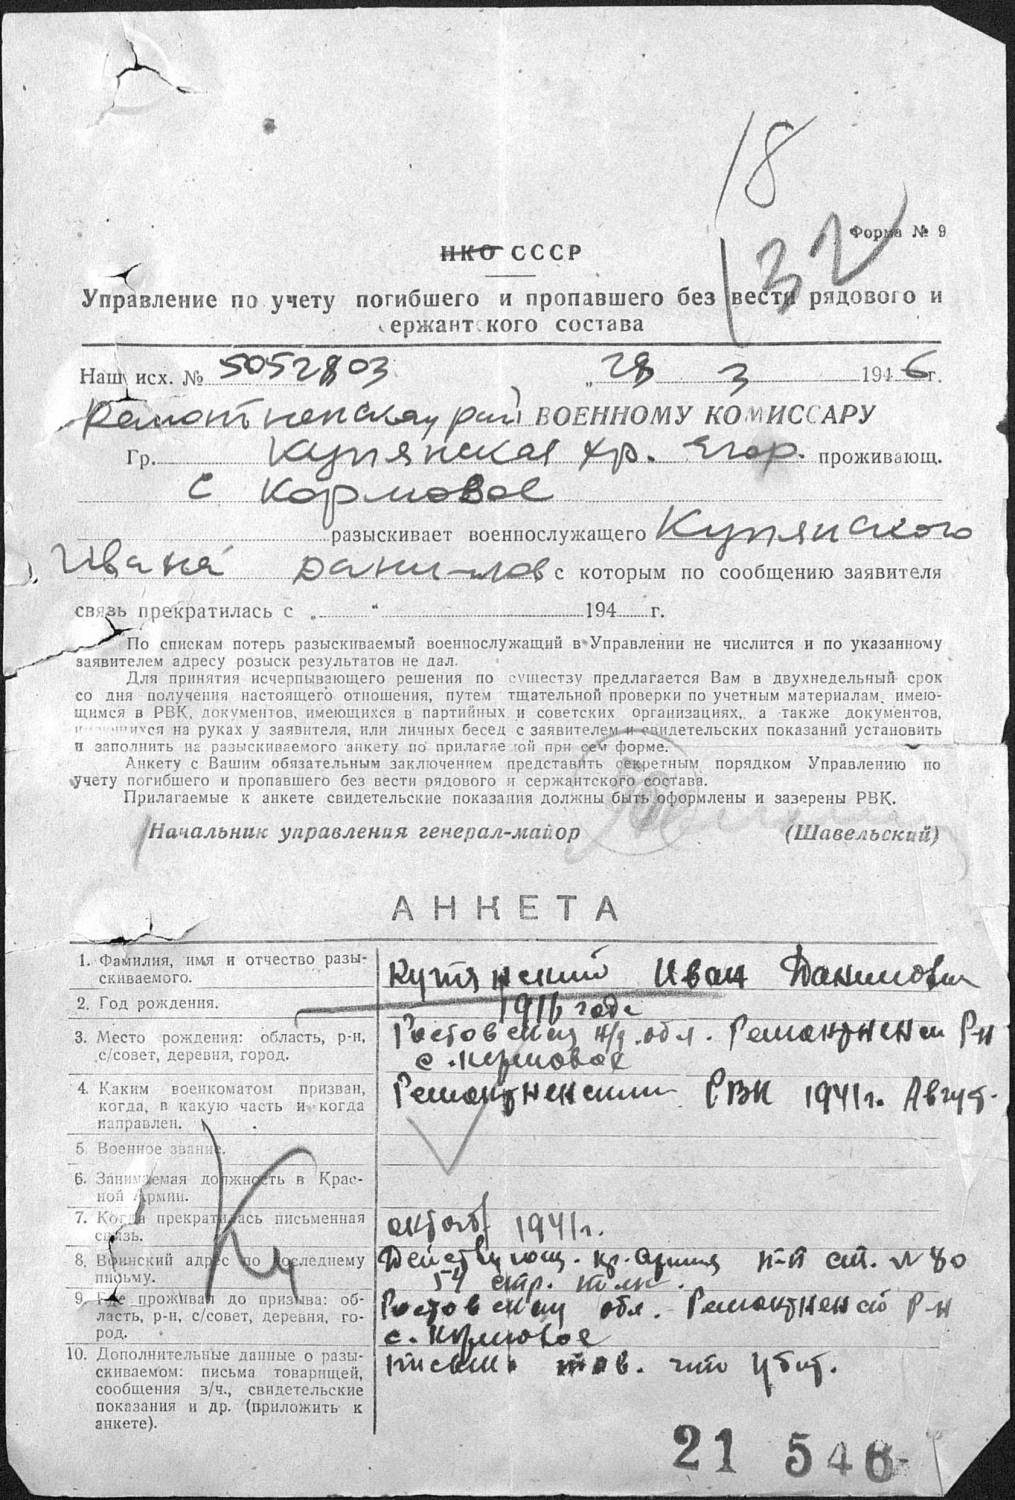 18
132
Форма № 9
НКО СССР
Управление по учету погибшего и пропавшего без вести рядового и
сержантского состава
Наш исх. № 5052803 „28 3 1946 г.
Ремонтненскому рай ВОЕННОМУ КОМИССАРУ
Гр. Купянская хр. Егор. проживающ.
с Кормовое
разыскивает военнослужащего Купянского
Ивана Данилов с которым по сообщению заявителя
связь прекратилась с „ " 194 г.
По спискам потерь разыскиваемый военнослужащий в Управлении не числится и по указанному
заявителем адресу розыск результатов не дал.
Для принятия исчерпывающего решения по существу предлагается Вам в двухнедельный срок
со дня получения настоящего отношения, путем тщательной проверки по учетным материалам, имею-
щимся в РВК, документов, имеющихся в партийных и советских организациях, а также документов,
имеющихся на руках у заявителя, или личных бесед с заявителем и свидетельских показаний установить
и заполнить на разыскиваемого анкету по прилагаемой при сем форме.
Анкету с Вашим обязательным заключением представить секретным порядком Управлению по
учету погибшего и пропавшего без вести рядового и сержантского состава.
Прилагаемые к анкете свидетельские показания должны быть оформлены и заверены РВК.
Начальник управления генерал-майор (Шавельский)
АНКЕТА
1. Фамилия, имя и отчество разы-
скиваемого.
Купянский Иван Данилович
2. Год рождения.
1916 года
3. Место рождения: область, р-н,
с/совет, деревня, город.
Ростовская н/д. обл. Ремонтненский Р-н
с. Кормовое
4. Каким военкоматом призван,
когда, в какую часть и когда
направлен.
Ремонтненским РВК 1941г. Август.
5 Военное звание.
6. Занимаемая должность в Крас-
ной Армии.
7. Когда прекратилась письменная
связь.
октябр 1941г.
8. Воинский адрес по последнему
письму.
Действующ. кр. армия п-п ст. № 80
54 стр. полк.
9. Где проживал до призыва: об-
ласть, р-н, с/совет, деревня, го-
род.
Ростовская обл. Ремонтненский Р-н
с. Кормовое
10. Дополнительные данные о разы-
скиваемом: письма товарищей,
сообщения з/ч., свидетельские
показания и др. (приложить к
анкете).
письмо тов. что убит.
21 546